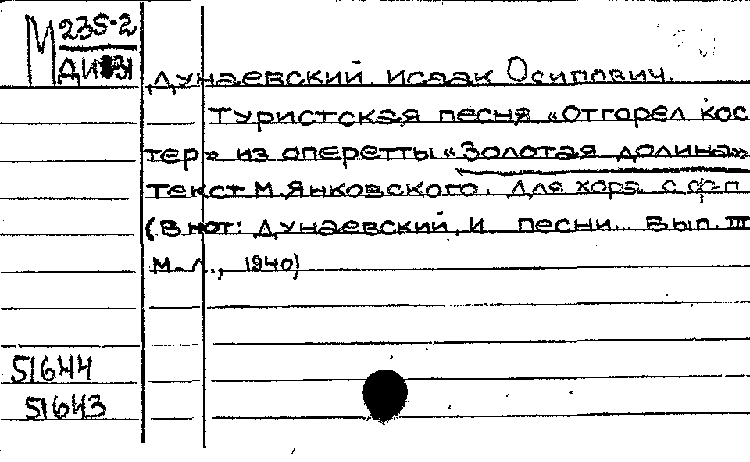 М 235-2
ДИ 31
Дунаевский Исаак Осипович.
Туристская песня «Отгорел кос
тер» из оперетты «Золотая долина»
Текст М. Янковского. Для хора с ф-п
(В нот: Дунаевский, И. песни. Вып. III
М.-Л., 1940)
51644
51643